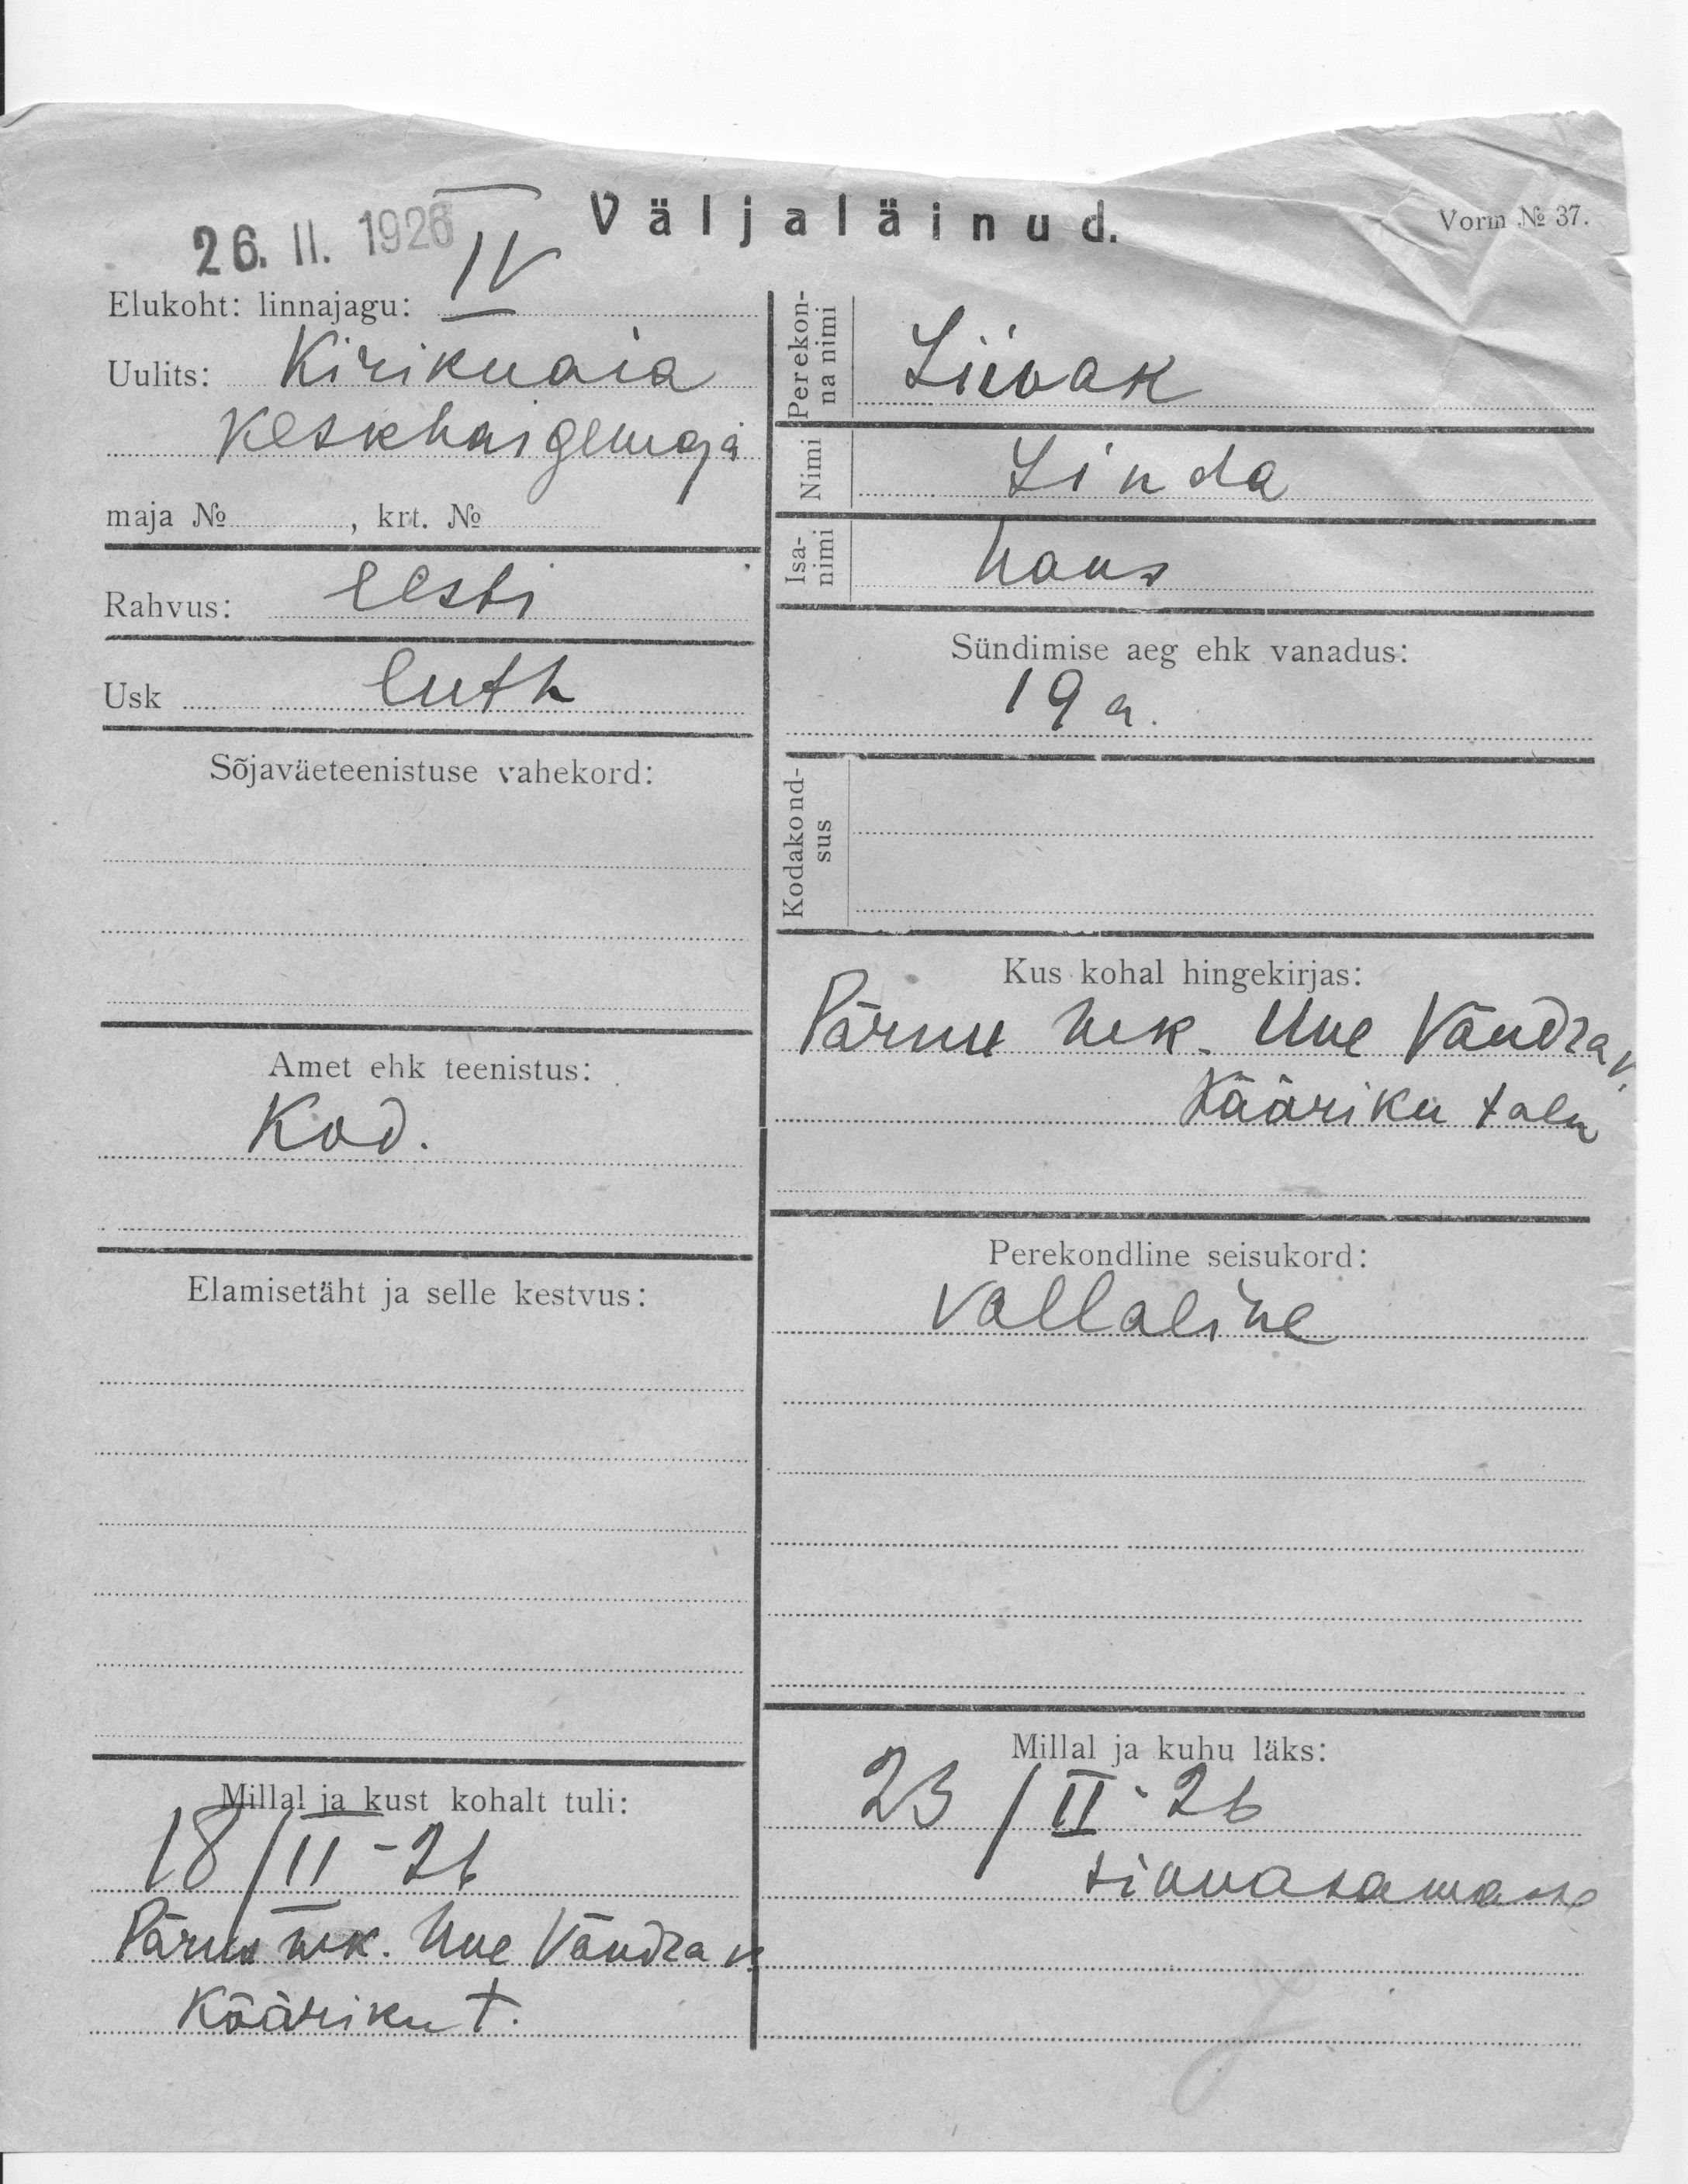 Väljaläinud.
Vorm № 37.
26. II. 1926
Elukoht: linnajagu: IV
Uulits: Kirikuaia
Keskhaigemaja
maja № , krt. №
Rahvus: eesti
Usk luth
Sõjaväeteenistuse vahekord:
Amet ehk teenistus:
Kod.
Elamisetäht ja selle kestvus:
Millal ja kust kohalt tuli:
18/II-26
Pärnu mk. Uue Vändra v.
Kääriku t.
Perekonna nimi Liivak
Nimi Linda
Isanimi Hans
Sündimise aeg ehk vanadus:
19 a.
Kodakondsus
Kus kohal hingekirjas:
Pärnu mk. Uue Vändra v.
Kääriku talu
Perekondline seisukord:
vallaline
Millal ja kuhu läks:
23/II-26
sinnasamasse